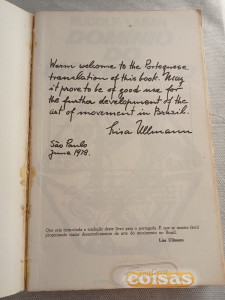 Warm welcome to the Portuguese
translation of this book. May
it prove to be of good use for
the further development of the
art of movement in Brazil.
Lisa Ullmann
São Paulo
June 1978.
Que seja bem-vinda a tradução deste livro para o português. E que se mostre fértil
propiciando maior desenvolvimento da arte do movimento no Brasil.
Lisa Ullmann
coisas